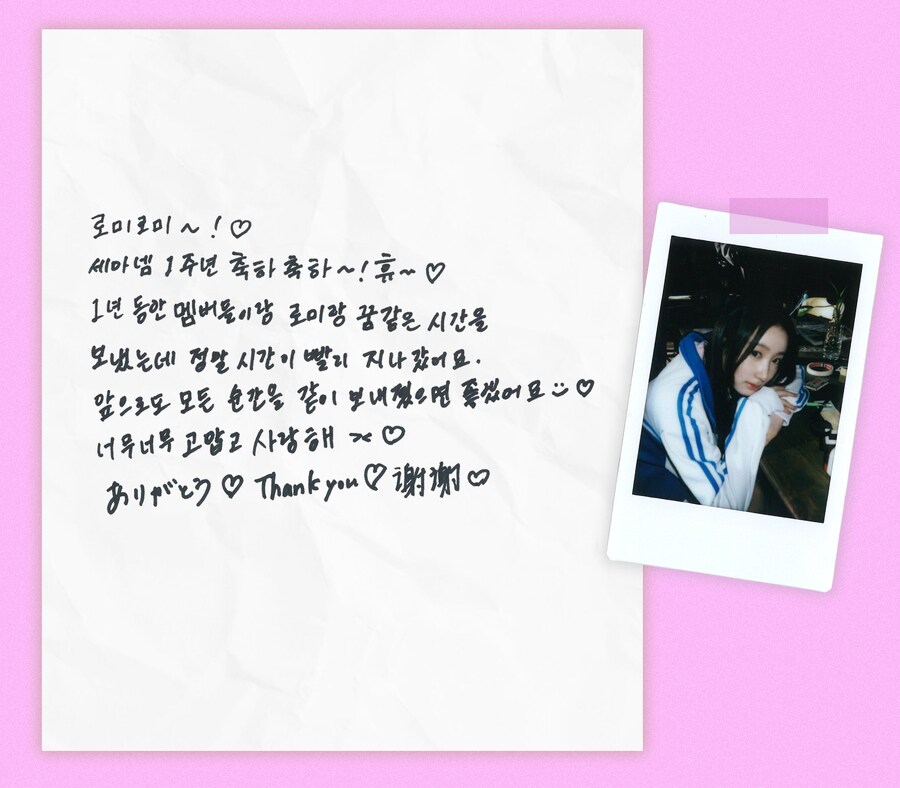 로미로미~! ♡
세마넴 1주년 축하 축하~! 휴~ ♡
1년 동안 멤버들이랑 로미랑 꿈같은 시간을
보냈는데 정말 시간이 빨리 지나갔어요.
앞으로도 모든 순간을 같이 보내줬으면 좋겠어요 ♡
너무너무 고맙고 사랑해 ♡
ありがとう ♡ Thank you ♡ 謝謝 ♡